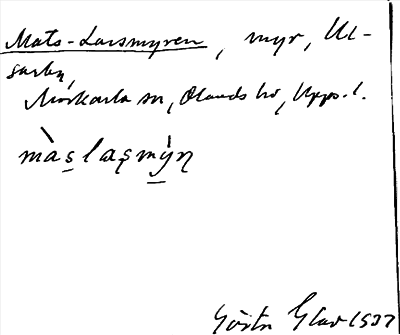 Mats-Larsmyren, myr, Ul-
sarby,
Morkarla sn, Olands hd, Upps. l.
màs̲laşmỳ̲ṇ
Gösta Glav 1937